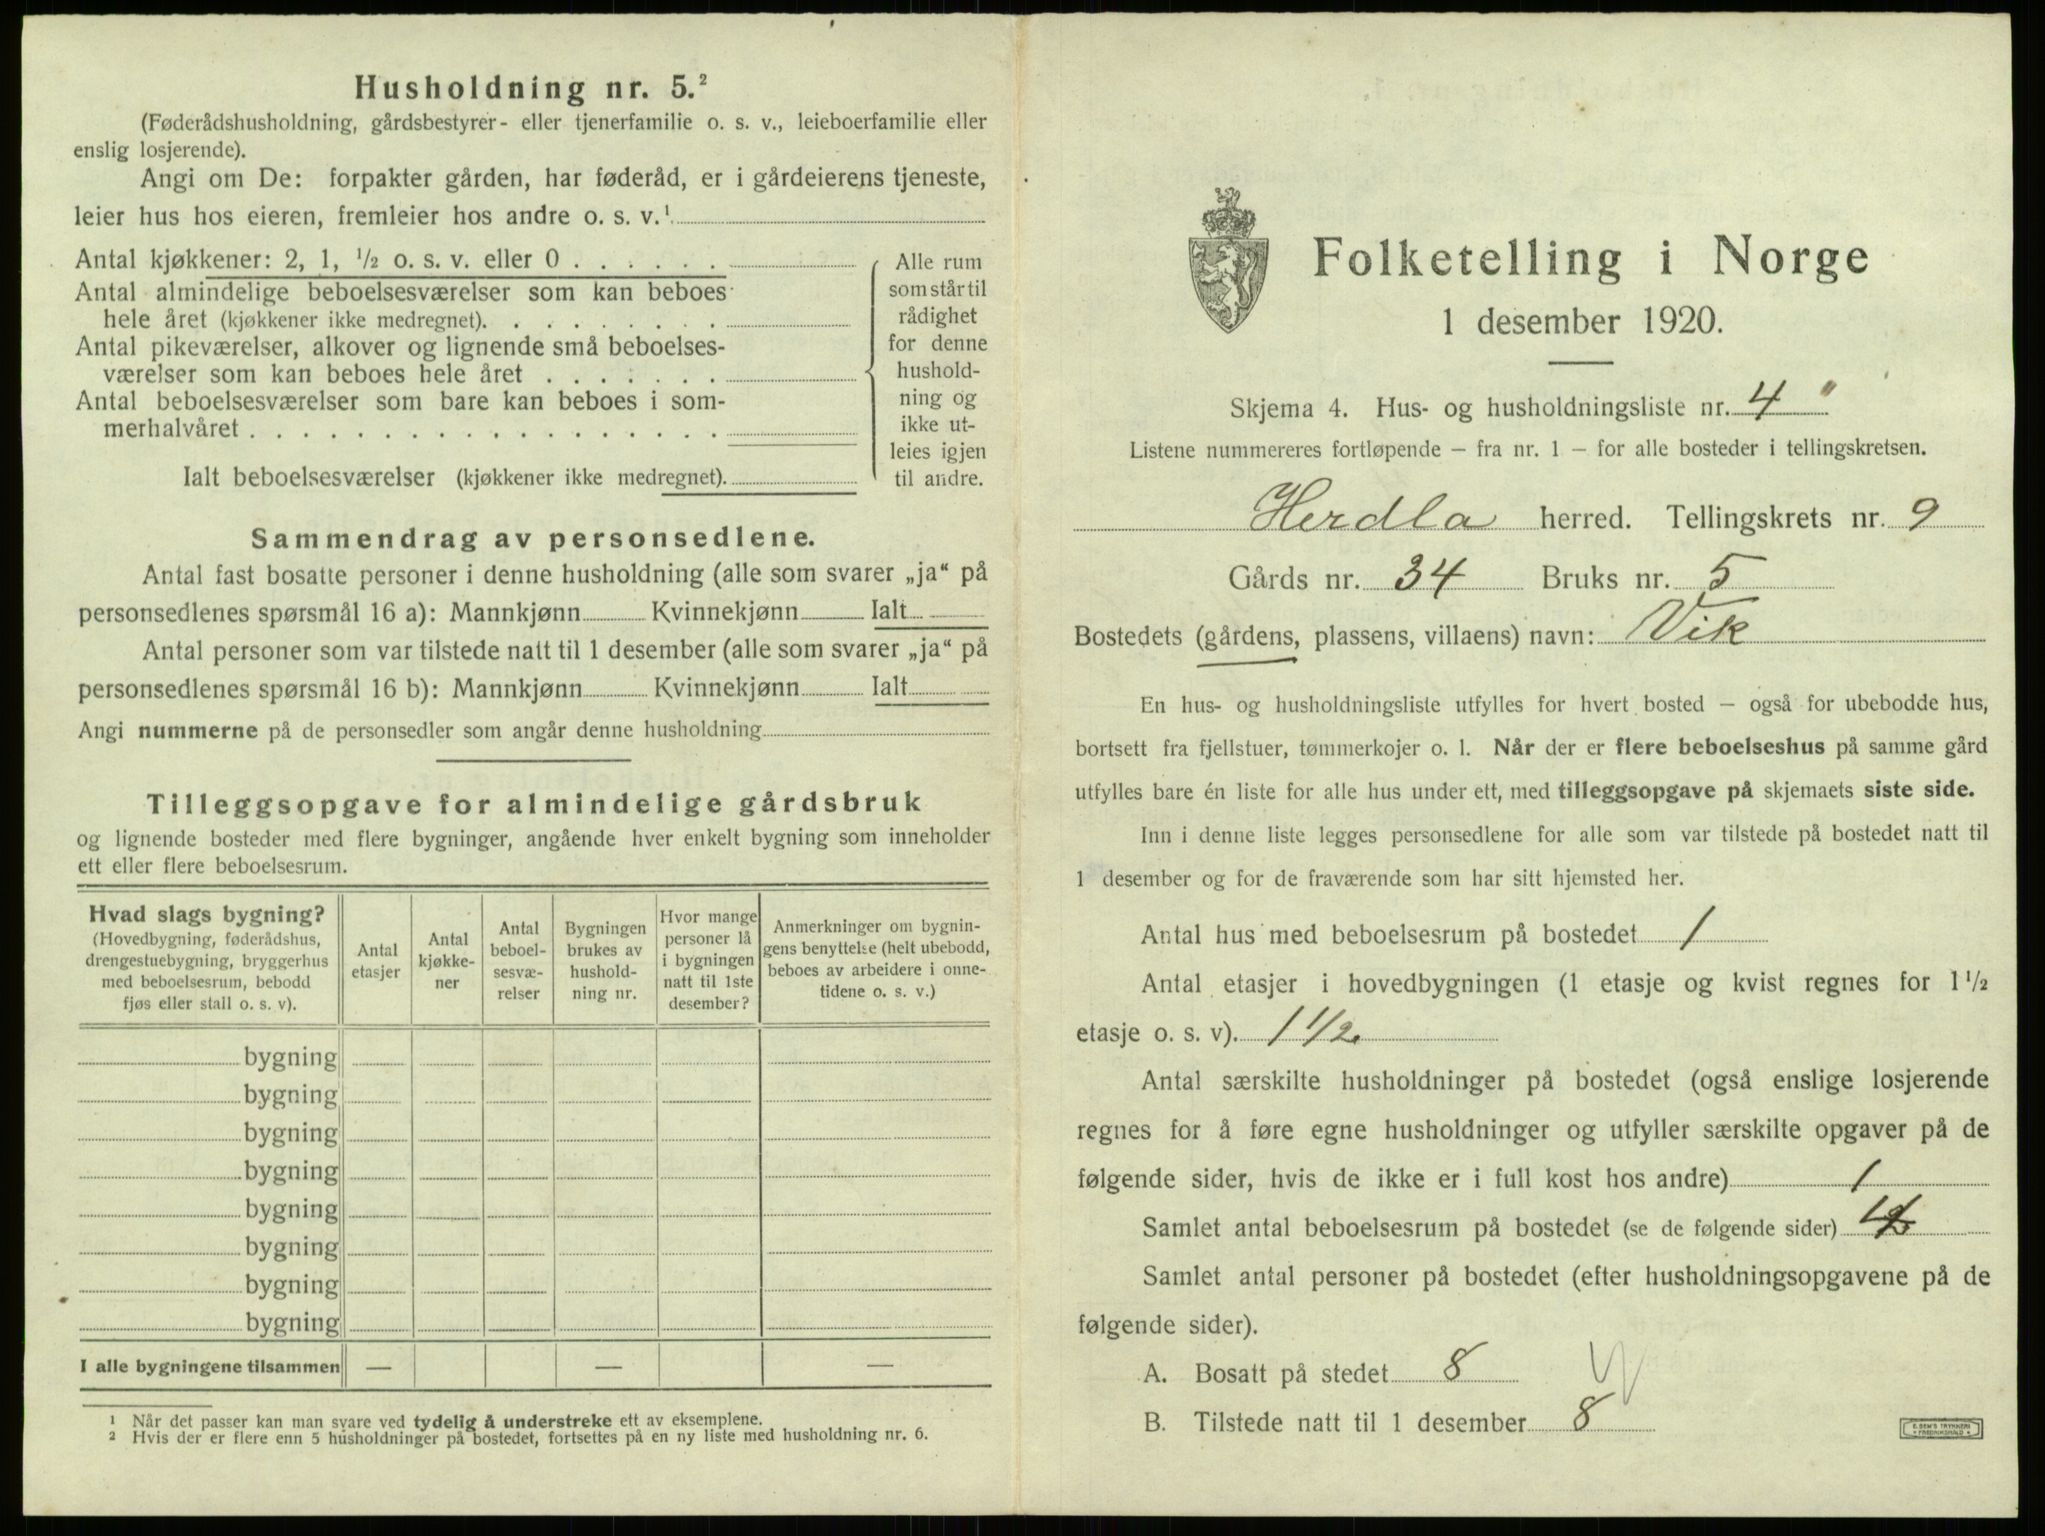 Husholdning nr. 5.²
(Føderådshusholdning, gårdsbestyrer- eller tjenerfamilie o. s. v., leieboerfamilie eller
enslig losjerende).
Angi om De: forpakter gården, har føderåd, er i gårdeierens tjeneste,
leier hus hos eieren, fremleier hos andre o. s. v.¹
Antal kjøkkener: 2, 1, ½ o. s. v. eller 0 . . . . . .
Antal almindelige beboelsesværelser som kan beboes
hele året (kjøkkener ikke medregnet). . . . . . . . .
Antal pikeværelser, alkover og lignende små beboelses-
værelser som kan beboes hele året . . . . . . .
Antal beboelsesværelser som bare kan beboes i som-
merhalvåret . . . . . . . . . . . . . . . . . .
Ialt beboelsesværelser (kjøkkener ikke medregnet).
Alle rum
som står til
rådighet
for denne
hushold-
ning og
ikke ut-
leies igjen
til andre.
Sammendrag av personsedlene.
Antal fast bosatte personer i denne husholdning (alle som svarer „ja“ på
personsedlenes spørsmål 16 a): Mannkjønn Kvinnekjønn Ialt
Antal personer som var tilstede natt til 1 desember (alle som svarer „ja“ på
personsedlenes spørsmål 16 b): Mannkjønn Kvinnekjønn Ialt
Angi nummerne på de personsedler som angår denne husholdning
Tilleggsopgave for almindelige gårdsbruk
og lignende bosteder med flere bygninger, angående hver enkelt bygning som inneholder
ett eller flere beboelsesrum.
Hvad slags bygning?
(Hovedbygning, føderådshus,
drengestuebygning, bryggerhus
med beboelsesrum, bebodd
fjøs eller stall o. s. v).
Antal
etasjer
Antal
kjøkke-
ner
Antal
beboel-
sesvæ-
relser
Bygningen
brukes av
hushold-
ning nr.
Hvor mange
personer lå
i bygningen
natt til 1ste
desember?
Anmerkninger om bygnin-
gens benyttelse (helt ubebodd,
beboes av arbeidere i onne-
tidene o. s. v.)
bygning
bygning
bygning
bygning
bygning
bygning
bygning
bygning
I alle bygningene tilsammen — — —
¹ Når det passer kan man svare ved tydelig å understreke ett av eksemplene.
² Hvis der er flere enn 5 husholdninger på bostedet, fortsettes på en ny liste med husholdning nr. 6.
Folketelling i Norge
1 desember 1920.
Skjema 4. Hus- og husholdningsliste nr. 4 "
Listene nummereres fortløpende — fra nr. 1 — for alle bosteder i tellingskretsen.
Herdla herred. Tellingskrets nr. 9
Gårds nr. 34 Bruks nr. 5
Bostedets (gårdens, plassens, villaens) navn: Vik
En hus- og husholdningsliste utfylles for hvert bosted — også for ubebodde hus,
bortsett fra fjellstuer, tømmerkojer o. l. Når der er flere beboelseshus på samme gård
utfylles bare én liste for alle hus under ett, med tilleggsopgave på skjemaets siste side.
Inn i denne liste legges personsedlene for alle som var tilstede på bostedet natt til
1 desember og for de fraværende som har sitt hjemsted her.
Antal hus med beboelsesrum på bostedet 1
Antal etasjer i hovedbygningen (1 etasje og kvist regnes for 1½
etasje o. s. v). 1½.
Antal særskilte husholdninger på bostedet (også enslige losjerende
regnes for å føre egne husholdninger og utfyller særskilte opgaver på de
følgende sider, hvis de ikke er i full kost hos andre) 1
Samlet antal beboelsesrum på bostedet (se de følgende sider)
Samlet antal personer på bostedet (efter husholdningsopgavene på de
følgende sider).
A. Bosatt på stedet 8
B. Tilstede natt til 1 desember 8